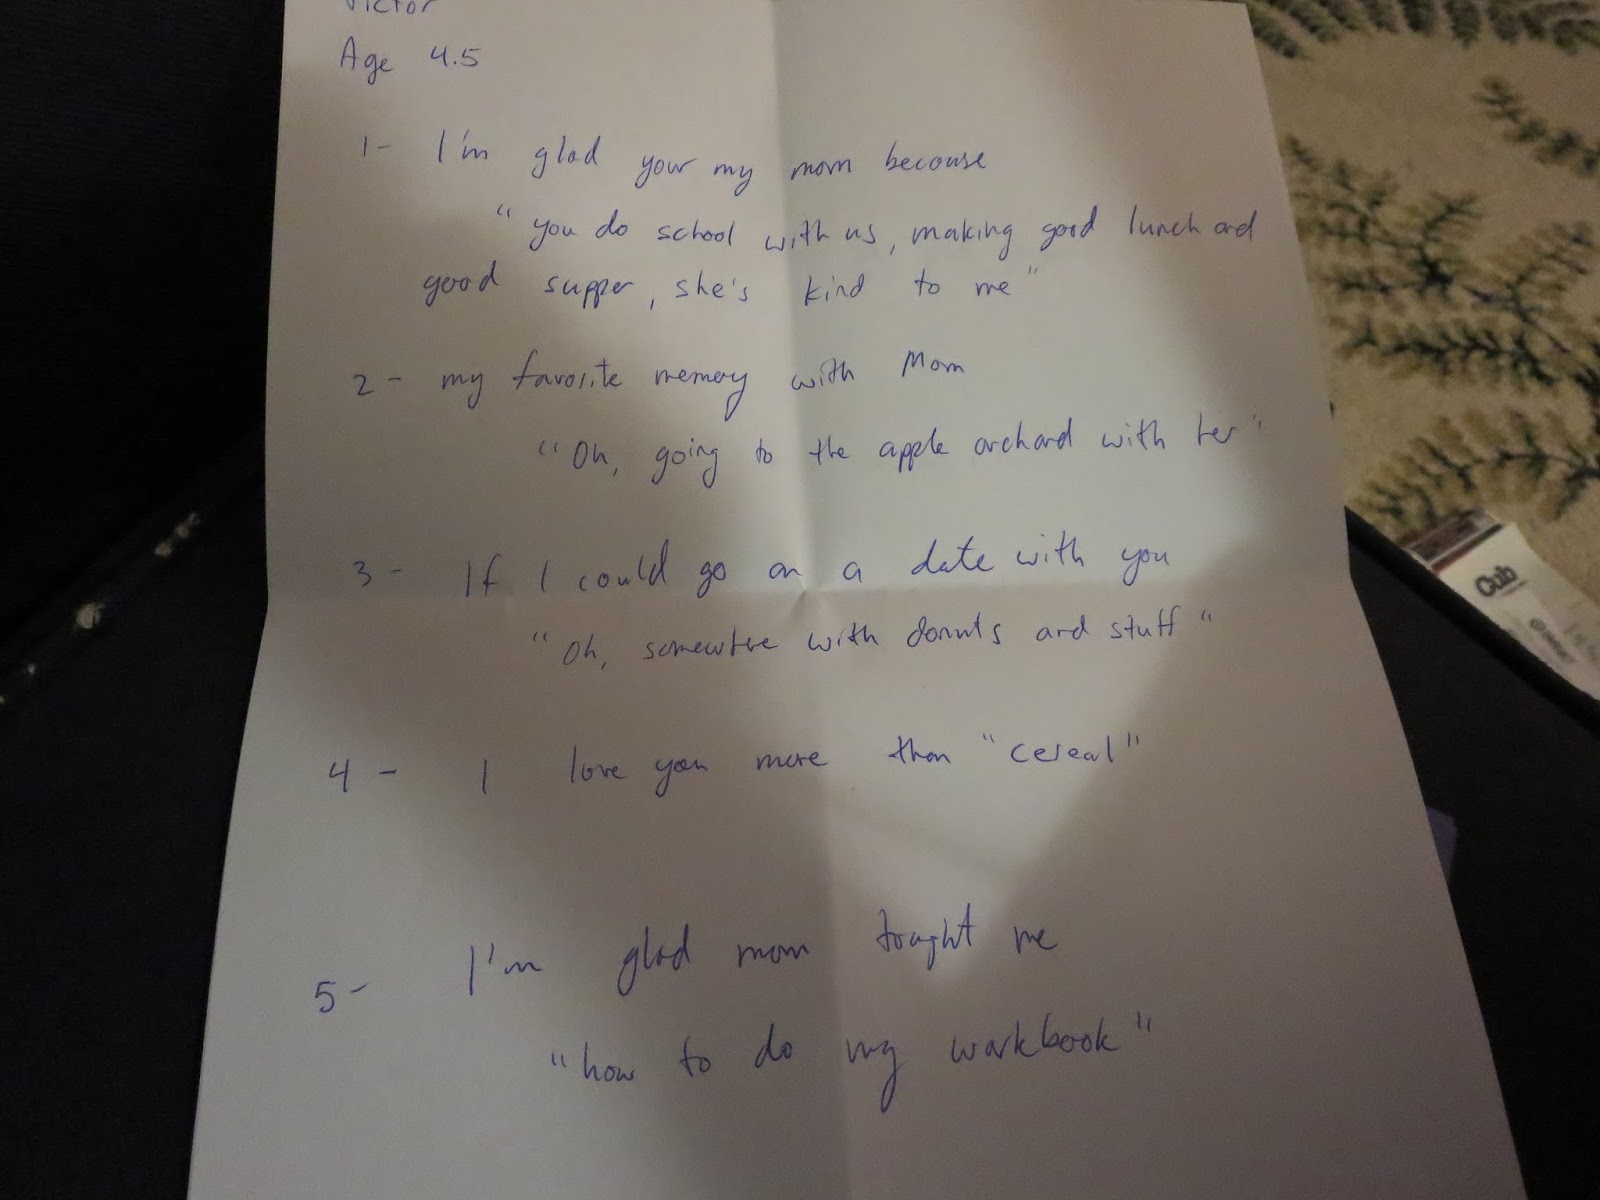 Victor
Age 4.5
1- I'm glad your my mom because
"you do school with us, making good lunch and
good supper, she's kind to me"
2- my favorite memory with Mom
"Oh, going to the apple orchard with her"
3- If I could go on a date with you
"Oh, somewhere with donuts and stuff"
4- I love you more than "cereal"
5- I'm glad mom tought me
"how to do my workbook"
Cub